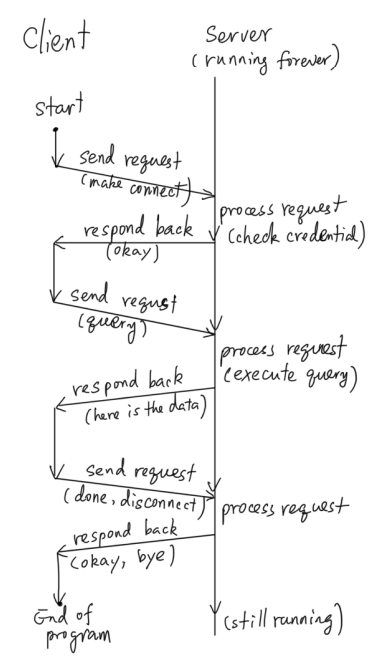 Client
Server
(running forever)
start
send request
(make connect)
process request
(check credential)
respond back
(okay)
send requst
(query)
process request
(execute query)
respond back
(here is the data)
send request
(done, disconnect)
process request
respond back
(okay, bye)
End of
program
(still running)